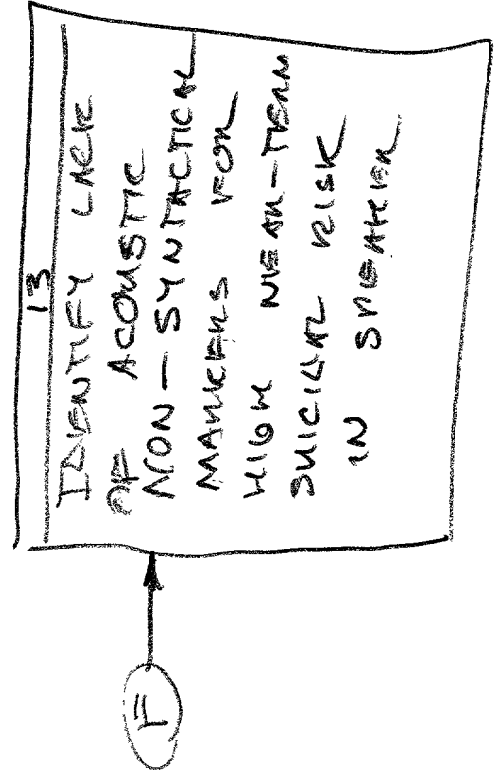 13
IDENTIFY LACK
OF ACOUSTIC
NON-SYNTACTICAL
MARKERS FOR
HIGH NEAR-TERM
SUICIDAL RISK
IN SPEAKER
F